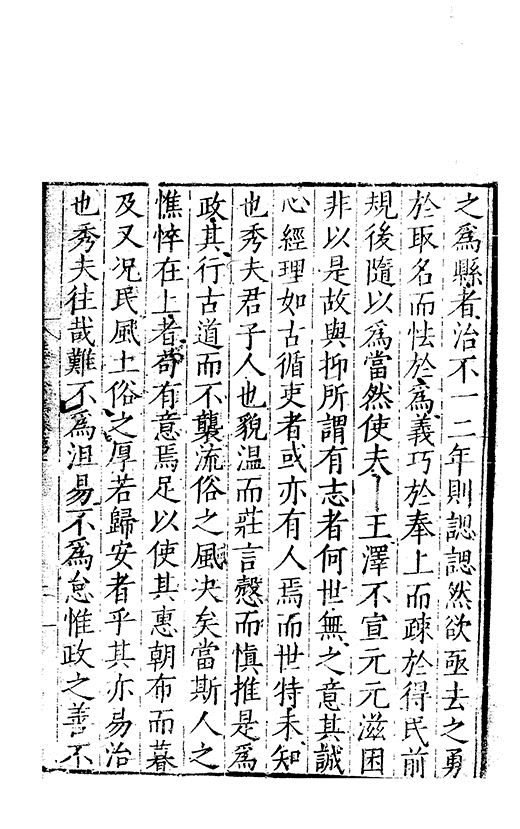 之爲縣者治不一二年則諰諰然欲亟去之勇
於取名而怯於爲義巧於奉上而疎於得民前
規後隨以爲當然使夫上王澤不宣元元滋困
非以是故與抑所謂有志者何世無之意其誠
心經理如古循吏者或亦有人焉而世特未知
也秀夫君子人也貌温而莊言慤而愼推是爲
政其行古道而不襲流俗之風决矣當斯人之
憔悴在上者苟有意焉足以使其惠朝布而暮
及又况民風土俗之厚若歸安者乎其亦易治
也秀夫往哉難不爲沮易不爲怠惟政之善不